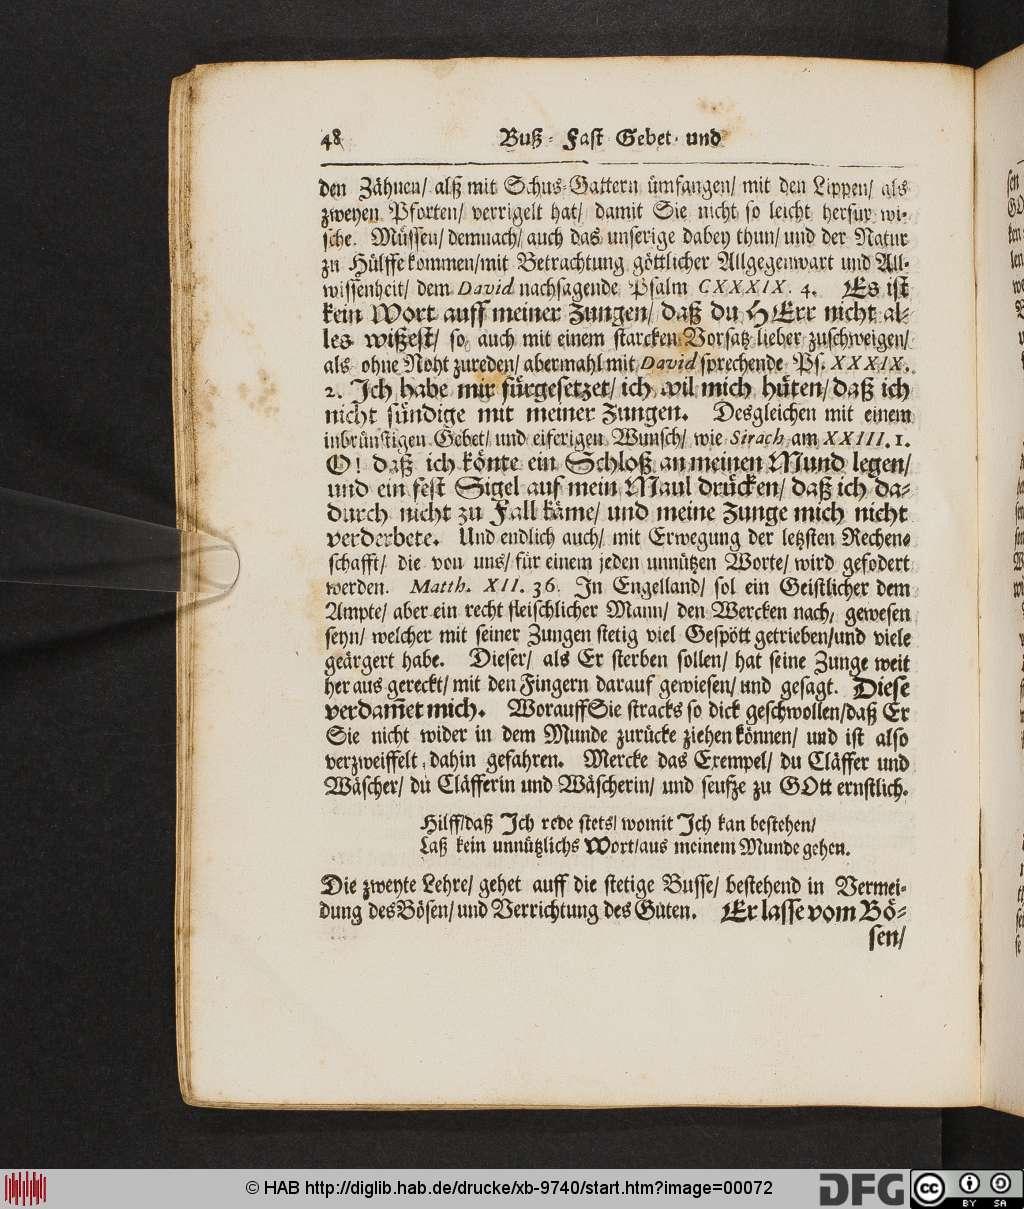 48 Buß- Fast Gebet- und
den Zähnen/ alß mit Schus-Gattern ümfangen/ mit den Lippen/ als
zweyen Pforten/ verrigelt hat/ damit Sie nicht so leicht herfür wi-
sche. Müssen/ demnach/ auch das unserige dabey thun/ und der Natur
zu Hülffe kommen/ mit Betrachtung göttlicher Allgegenwart und All-
wissenheit/ dem David nachsagende Psalm CXXXIX. 4. Es ist
kein Wort auff meiner Zungen/ daß du HErr nicht al-
les wißest/ so auch mit einem starcken Vorsatz lieber zuschweigen/
als ohne Noht zureden/ abermahl mit David sprechende Ps. XXXIX.
2. Ich habe mir fürgesetzet/ ich wil mich hüten/ daß ich
nicht sündige mit meiner Zungen. Desgleichen mit einem
inbrünstigen Gebet/ und eiferigen Wunsch/ wie Sirach am XXIII. 1.
O! daß ich könte ein Schloß an meinen Mund legen/
und ein fest Sigel auf mein Maul drücken/ daß ich da-
durch nicht zu Fall käme/ und meine Zunge mich nicht
verderbete. Und endlich auch/ mit Erwegung der letzsten Rechen-
schafft/ die von uns/ für einem jeden unnützen Worte/ wird gefodert
werden. Matth. XII. 36. In Engelland/ sol ein Geistlicher dem
Ampte/ aber ein recht fleischlicher Mann/ den Wercken nach, gewesen
seyn/ welcher mit seiner Zungen stetig viel Gespött getrieben/ und viele
geärgert habe. Dieser/ als Er sterben sollen/ hat seine Zunge weit
her aus gereckt/ mit den Fingern darauf gewiesen/ und gesagt. Diese
verdam̃et mich. Worauff Sie stracks so dick geschwollen/ daß Er
Sie nicht wider in dem Munde zurücke ziehen können/ und ist also
verzweiffelt, dahin gefahren. Mercke das Exempel/ du Cläffer und
Wäscher/ du Cläfferin und Wäscherin/ und seufze zu GOtt ernstlich.
Hilff/ daß Ich rede stets/ womit Ich kan bestehen/
Laß kein unnützlichs Wort/ aus meinem Munde gehen.
Die zweyte Lehre/ gehet auff die stetige Busse/ bestehend in Vermei-
dung des Bösen/ und Verrichtung des Guten. Er lasse vom Bö-
sen/
© HAB http://diglib.hab.de/drucke/xb-9740/start.htm?image=00072
DFG cc BY SA